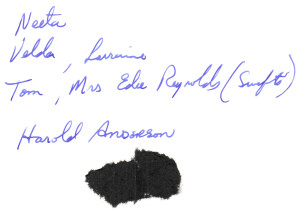 Neeta
Velda, Lorraine
Tom, Mrs Edie Reynolds (Swifts)
Harold Anderson